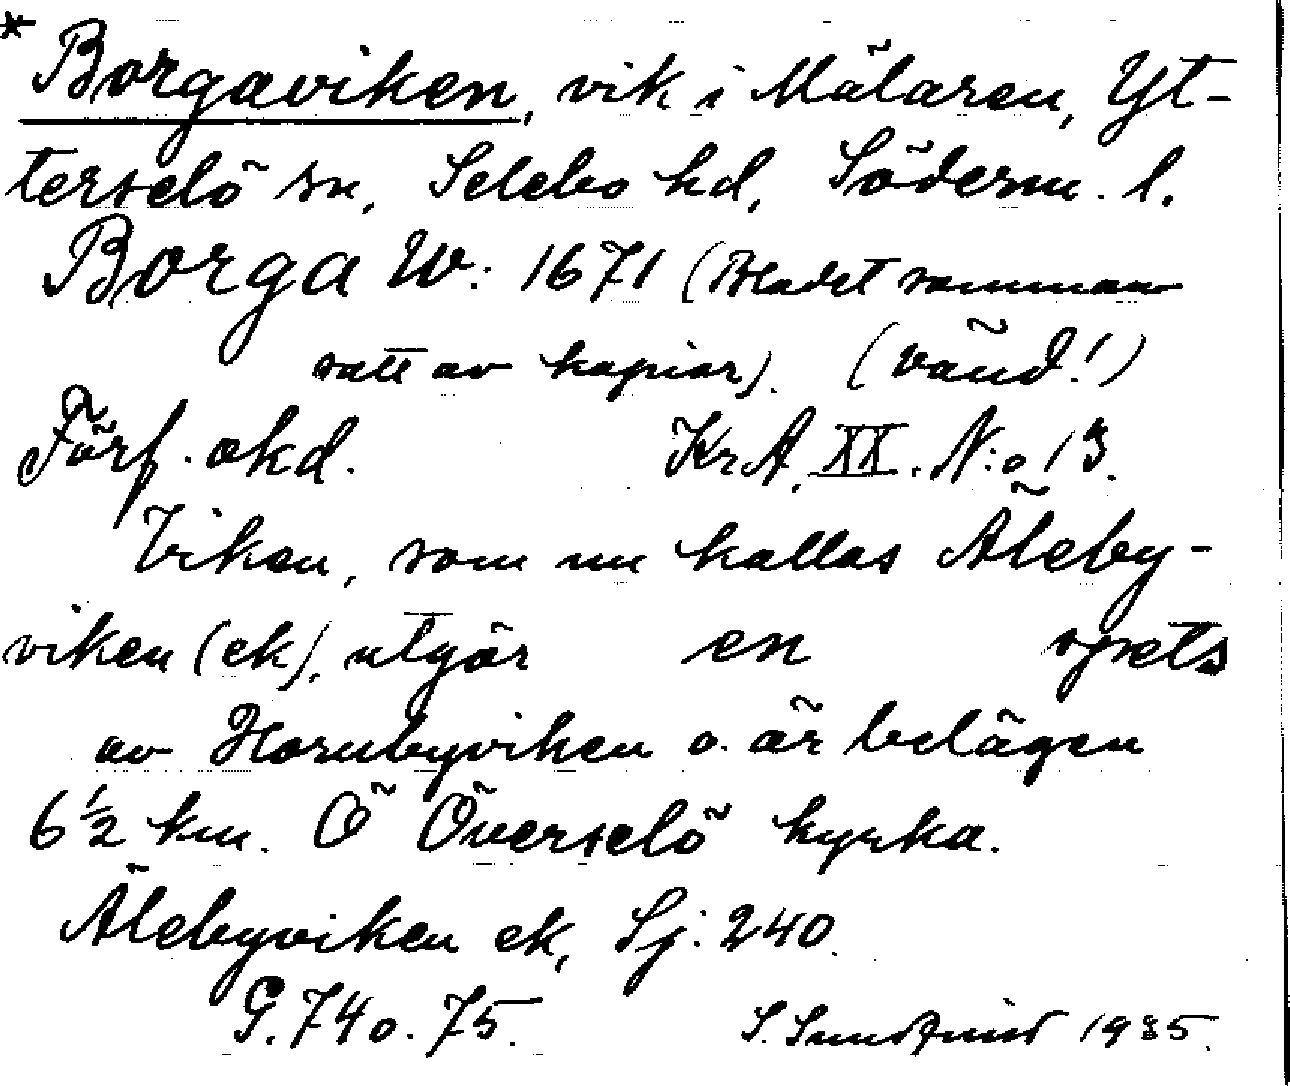 * Borgaviken, vik i Mälaren, Yt-
terselö sn, Selebo hd, Söderm. l.
Borga W: 1671 (Bladet samman
satt av kopior). (vänd!)
Förf. okd. KrA. XX. N:o 13.
Viken, som nu kallas Äleby-
viken (ek), utgör en spets
av Hornbyviken o. är belägen
6 1/2 km. Ö Överselö kyrka.
Älebyviken ek, Sj. 240.
G. 74 o. 75. S. Sundqvist 1935.